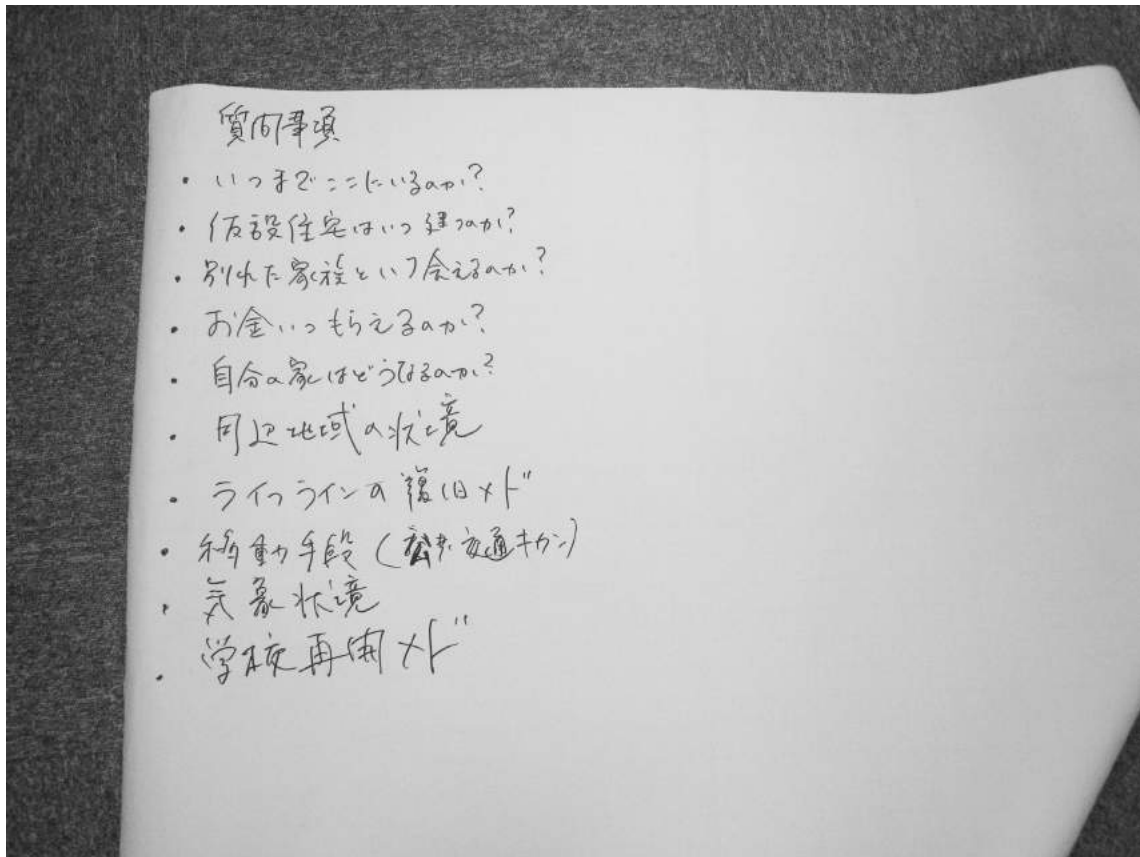 質問事項
・いつまでここにいるのか?
・仮設住宅はいつ建つのか?
・別れた家族といつ会えるのか?
・お金いつもらえるのか?
・自分の家はどうなるのか?
・周辺地域の状境
・ライフラインの復旧メド
・移動手段(公共交通キカン)
・気象状境
・学校再開メド